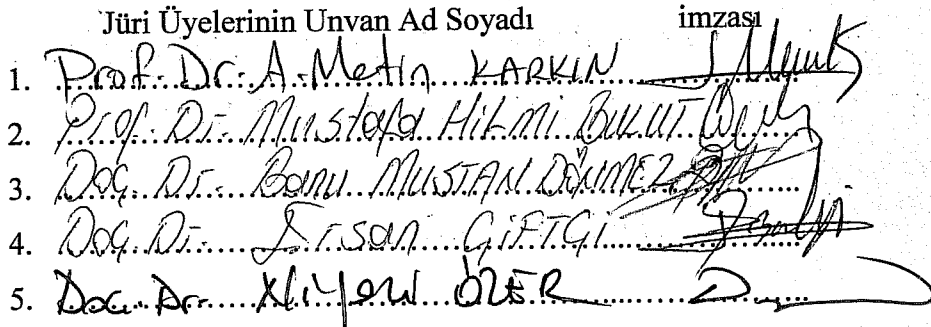 Jüri Üyelerinin Unvan Ad Soyadı imzası
1. Prof. Dr. A. Metin KARKIN
2. Prof. Dr. Mustafa HiLMi BULUT
3. Doç. Dr. Banu MUSTAN DÖNMEZ
4. Doç. Dr. Ersan ÇiFTÇi
5. Doç. Dr. ÖZER